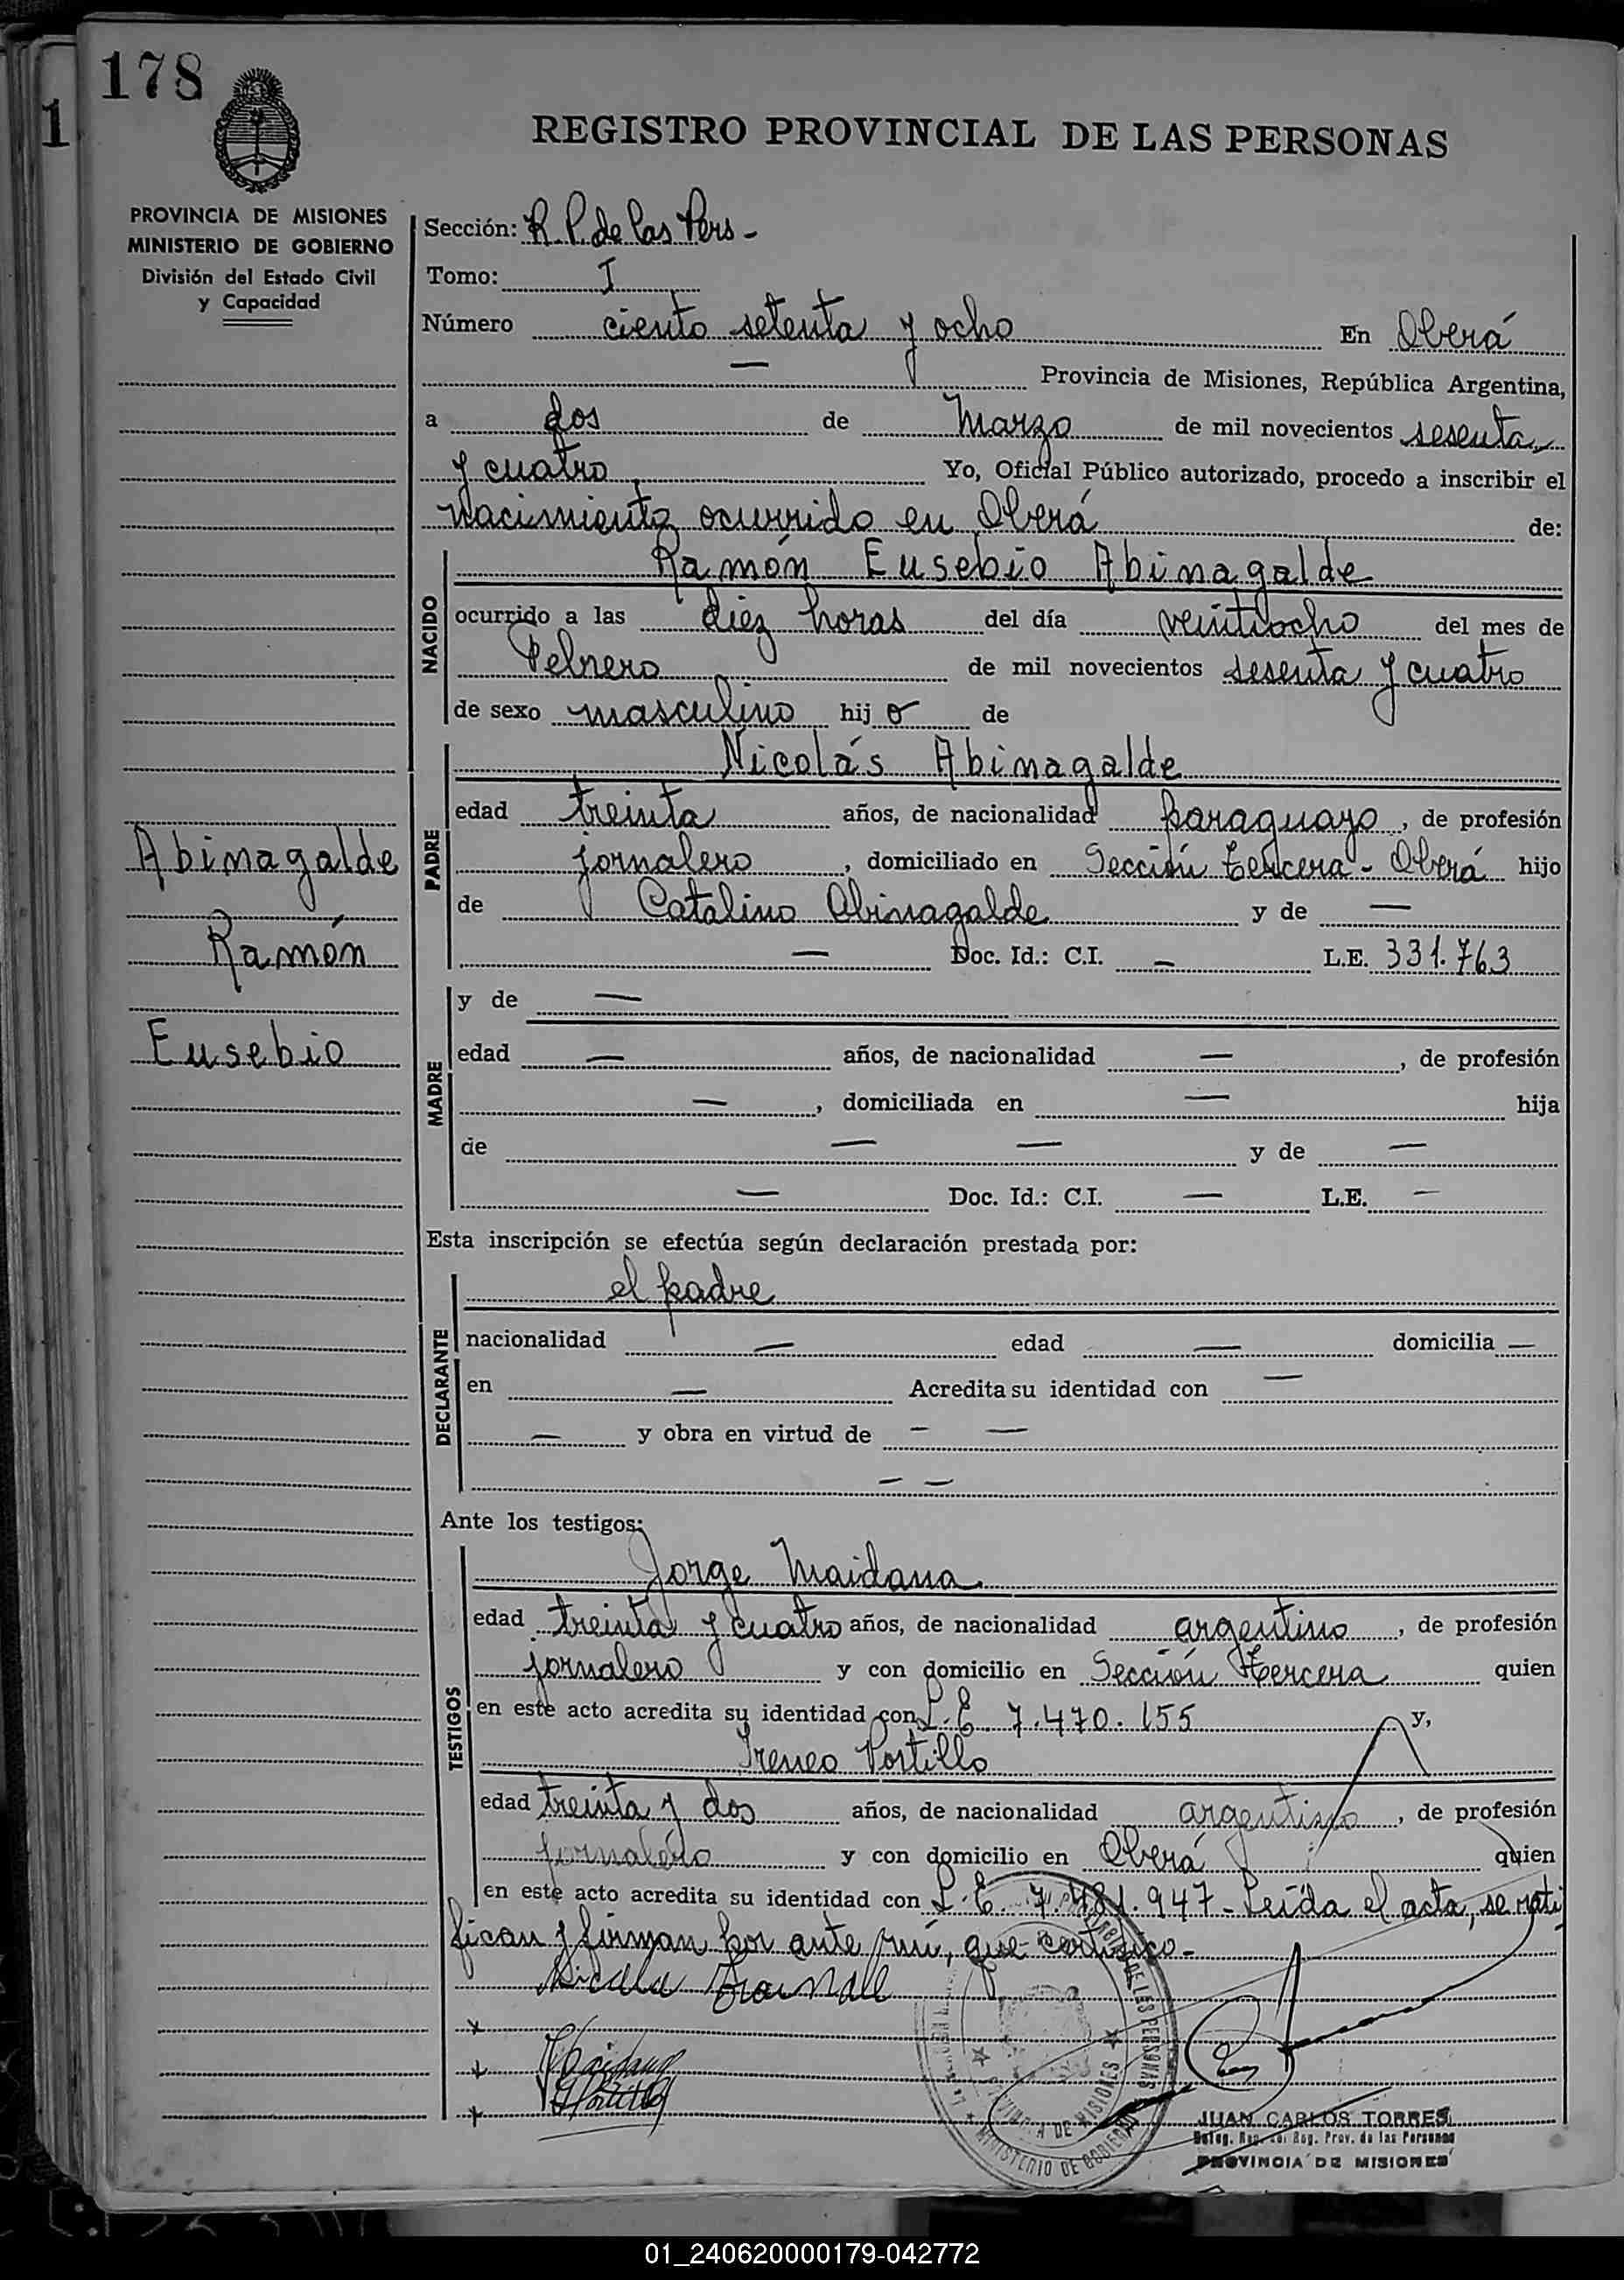 178
1
REGISTRO PROVINCIAL DE LAS PERSONAS
PROVINCIA DE MISIONES
MINISTERIO DE GOBIERNO
División del Estado Civil
y Capacidad
Sección: R. P. de las Pers -
Tomo: I
Número ciento setenta y ocho En Oberá
— Provincia de Misiones, República Argentina,
a dos de Marzo de mil novecientos sesenta
y cuatro Yo, Oficial Público autorizado, procedo a inscribir el
Nacimiento ocurrido en Oberá de:
NACIDO
Ramón Eusebio Abinagalde
ocurrido a las diez horas del día veintiocho del mes de
Febrero de mil novecientos sesenta y cuatro
de sexo masculino hijo de
PADRE
Nicolás Abinagalde
edad treinta años, de nacionalidad paraguayo, de profesión
jornalero, domiciliado en Sección tercera - Oberá hijo
de Catalino Abinagalde y de —
— Doc. Id.: C.I. — L.E. 331.763
Abinagalde
Ramón
Eusebio
MADRE
y de —
edad — años, de nacionalidad —, de profesión
—, domiciliada en — hija
de — — y de —
— Doc. Id.: C.I. — L.E. —
Esta inscripción se efectúa según declaración prestada por:
DECLARANTE
el padre
nacionalidad — edad — domicilia —
en — Acredita su identidad con —
— y obra en virtud de - —
- —
Ante los testigos:
TESTIGOS
Jorge Maidana
edad treinta y cuatro años, de nacionalidad argentino, de profesión
jornalero y con domicilio en Sección tercera quien
en este acto acredita su identidad con L.E. 7.470.155 y,
Ireneo Portillo
edad treinta y dos años, de nacionalidad argentino, de profesión
jornalero y con domicilio en Oberá quien
en este acto acredita su identidad con L.E. 7.481.947 - Leída el acta, se rati
fican y firman por ante mí, que certifico -
PROVINCIA DE MISIONES
MINISTERIO DE GOBIERNO
JUAN CARLOS TORRES
Reg. Prov. de las Personas
PROVINCIA DE MISIONES
01_240620000179-042772